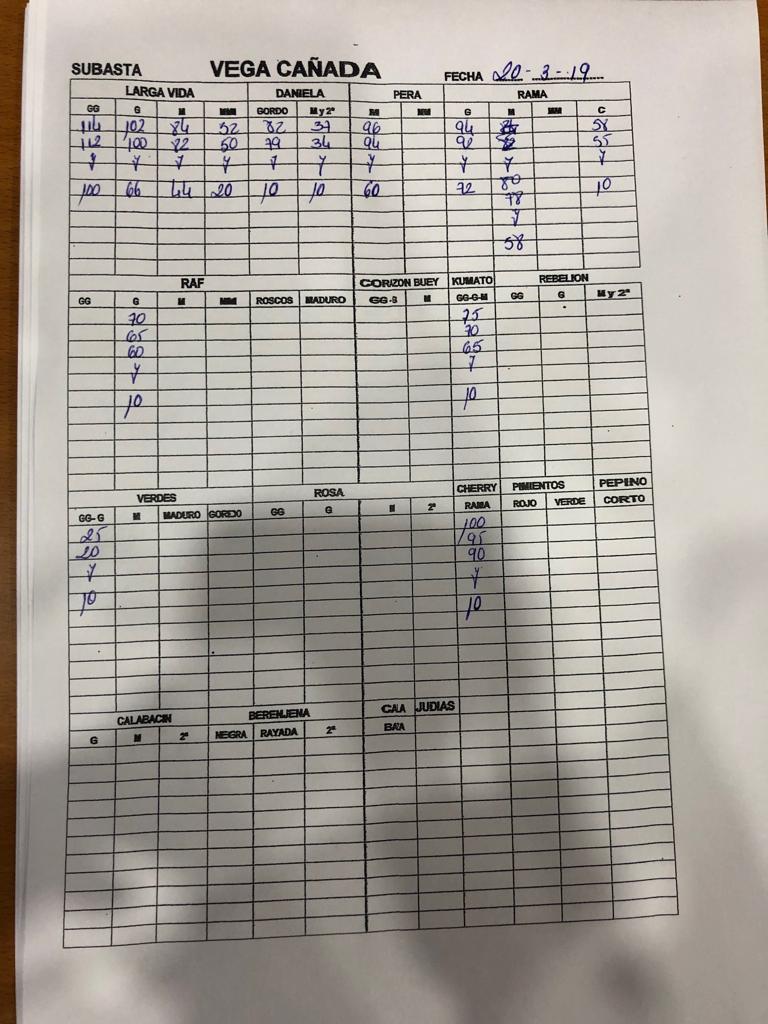 SUBASTA VEGA CAÑADA FECHA 20-3-19
LARGA VIDA DANIELA PERA RAMA
GG G M MM GORDO M y 2ª M MM G M MM C
114 102 84 52 82 37 96 94 58
112 100 82 50 79 34 94 92 55
y y y y y y y y y y
100 66 44 20 10 10 60 72 80 10
78
y
58
RAF CORIZON BUEY KUMATO REBELION
GG G M MM ROSCOS MADURO GG-G M GG-G-M GG G M y 2ª
70 75
65 70
60 65
y y
10 10
VERDES ROSA CHERRY PIMIENTOS PEPINO
GG-G M MADURO GORDO GG G M 2ª RAMA ROJO VERDE CORTO
25 100
20 95
y 90
10 y
10
CALABACIN BERENJENA CAÑA JUDIAS
G M 2ª NEGRA RAYADA 2ª BAJA